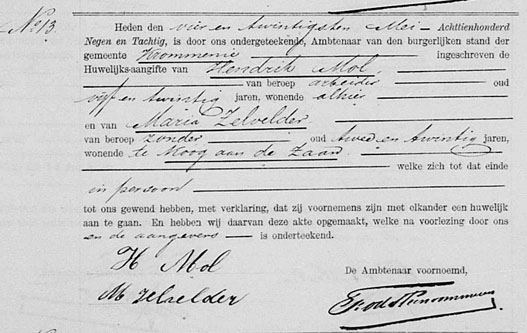 No 13.
Heden den vier en twintigsten Mei - Achttienhonderd
Negen en Tachtig, is door ons ondergeteekende, Ambtenaar van den burgerlijken stand der
gemeente Krommenie ingeschreven de
Huwelijks-aangifte van Hendrik Mol
van beroep arbeider oud
vijf en twintig jaren, wonende alhier
en van Maria Zelvelder
van beroep zonder oud twee en twintig jaren,
wonende te Koog aan de Zaan
welke zich tot dat einde
in persoon
tot ons gewend hebben, met verklaring, dat zij voornemens zijn met elkander een huwelijk
aan te gaan. En hebben wij daarvan deze akte opgemaakt, welke na voorlezing door ons
en de aangevers - is onderteekend.
H Mol
De Ambtenaar voornoemd,
M Zelvelder